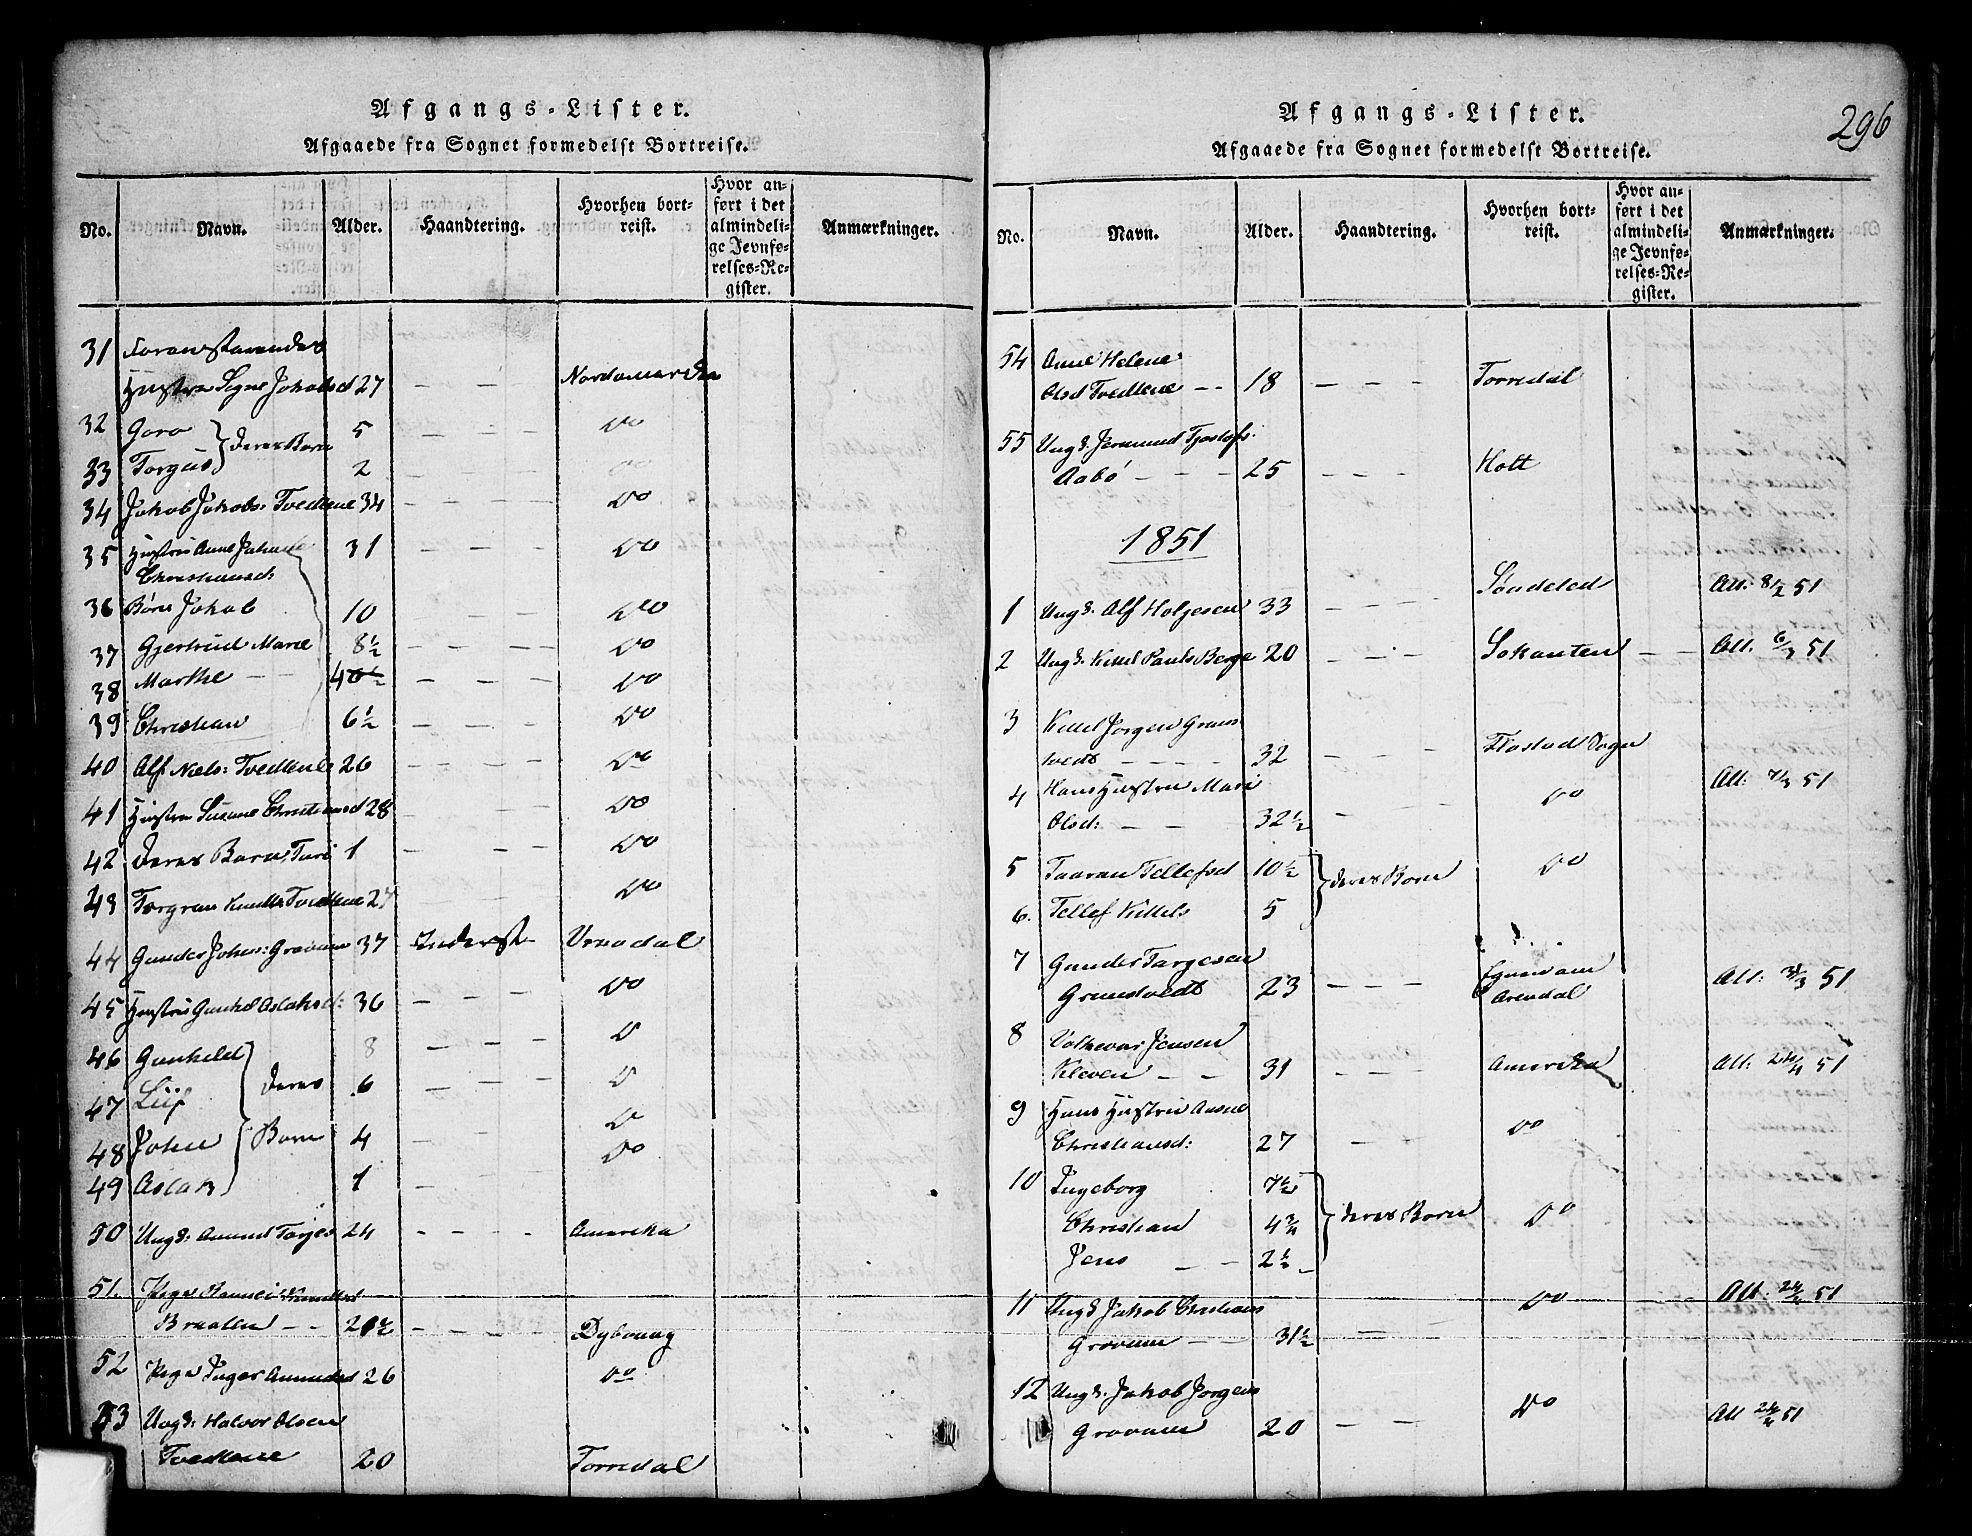 Afgangs-Lister.
Afgaaede fra Sognet formedelst Bortreise.
No. Navn. Alder. Haandtering. Hvorhen bortreist. Hvor anført i det almindelige Jevnførelses-Register. Anmærkninger.
31 Foranstaaendes
Hustru Signe Jakobsd 27 - - - Nordamerika
32 Goro } deres Børn 5 - - - do
33 Torgus 2 - - - do
34 Jakob Jakobs: Tvedtene 34 - - - do
35 Hustru Anne 31 - - - do
Christiansd:
36 Børn Jakob 10 - - - do
37 Gjertrud Marie 8½ - - - do
38 Marthe - - 4 - - - do
39 Christian 6½ - - - do
40 Alf Niels: Tvedtene 26 - - - do
41 Hustru Susanne Christiansd 28 - - - do
42 deres Barn, Turi 1 - - - do
43 Torgrim Knudts: Tvedtene 27 do
44 Gunder Johns: Gravum 37 Inderst Vraadal
45 Hustru Gunhil Aslaksd: 36 - - - do
46 Gunhild 8 - - - do
47 } deres 6 - - - do
48 John } Børn 4 - - - do
49 Aslak 1 - - - do
50 Ungk: Amund Torjes 24 - - - - Amerika
51. Pige
Braaten - - - - - - Dybvaag
52 Pige Inger Amundsd 26 do
53 Ungk: Halvor Olsen
Tvedtene 20 Torredal
Afgangs-Lister.
296
Afgaaede fra Sognet formedelst Bortreise.
No. Navn. Alder. Haandtering. Hvorhen bortreist. Hvor anført i det almindelige Jevnførelses-Register. Anmærkninger.
54 Anne Helene
Olsd Tvedtene - - 18 - - - Torredal
55 Ungk. Jermund Tjostofs:
Aabö - - - 25 - - - Holt
1851
1 Ungk: Alf Holjesen 33 - - - Søndeled Att: 8/2 51
2 Ungk: Kittel Pauls Berge 20 - - - - - Att. 6/3 51
3 Kittel Jørgen Gruns
tvedt - - - - 32 - - - Flostad Sogn
Att: 7/3 51
4 Hans Hustru Mari
Olsd: - - 32½ - do
5 Taaran Tellefsd 10½ } deres Børn do
6. Tellef Kittels 5
7 Gunder Targesen
Grunstvedt 23 - - - Arendal Att: 51
8 Volkevar Jensen
Kleven - - 31 - - - Amerika Att: 24/4 51
9 Hans Hustru Aasne
Christiansd: 27 - - do
10 Ingeborg 7½
Christian 4¾ } deres Børn do
Jens - - 2½ -
11 Ungk Jakob Christians
Gravum - - 31½ - do Att: 24/4 51
12 Ungk: Jakob Jørgens
Gravum 20 - - do Att 24/4 51